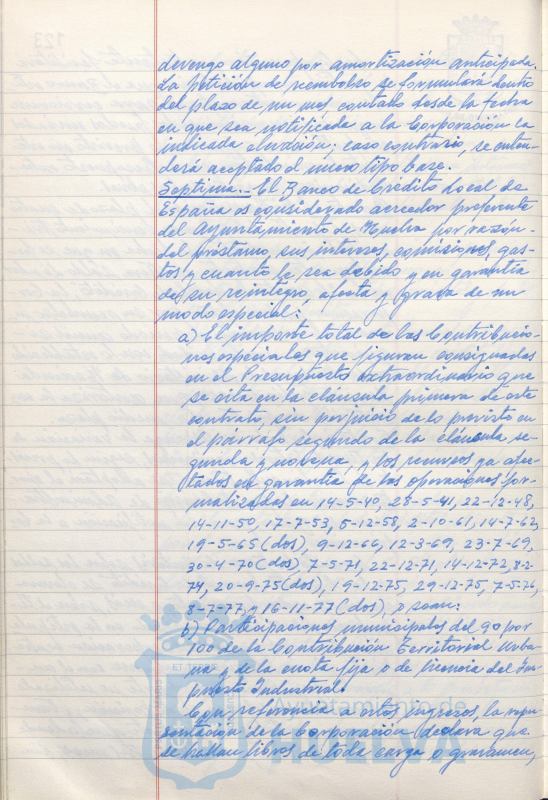 devengo alguno por amortización anticipada.
La petición de reembolso se formulará dentro
del plazo de un mes contado desde la fecha
en que sea notificada a la Corporación la
indicada elevación; caso contrario, se enten-
derá aceptado el nuevo tipo base.
Septima.- El Banco de Crédito Local de
España es considerado acreedor preferente
del Ayuntamiento de Huelva por razón
del préstamo, sus intereses, comisiones, gas-
tos y cuanto le sea debido y en garantía
de su reintegro, afecta y grava de un
modo especial:
a) El importe total de las Contribucio-
nes especiales que figuran consignadas
en el Presupuesto extraordinario que
se cita en la cláusula primera de este
contrato, sin perjuicio de lo previsto en
el párrafo segundo de la cláusula se-
gunda y novena, y los recursos ya afec-
tados en garantía de las operaciones for-
malizadas en 14-5-40, 28-5-41, 22-12-48,
14-11-50, 17-7-53, 5-12-58, 2-10-61, 14-7-62,
19-5-65 (dos), 9-12-66, 12-3-69, 23-7-69,
30-4-70 (dos), 7-5-71, 22-12-71, 14-12-72, 8-2-
74, 20-9-75 (dos), 19-12-75, 29-12-75, 7-5-76,
8-7-77 y 16-11-77 (dos), o sean:
b) Participaciones municipales del 90 por
100 de la Contribución Territorial Urba-
na y de la cuota fija o de licencia del Im-
puesto Industrial.
Con referencia a estos ingresos, la repre
sentación de la Corporación declara que
se hallan libres de toda carga o gravamen,
Ayuntamiento de